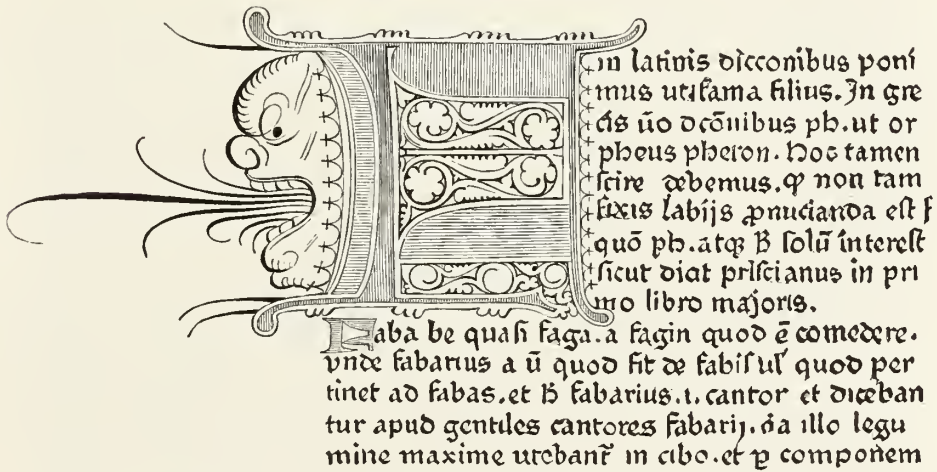 F
in latinis dicconibus poni
mus ut.fama filius. In gre
cis ūo dcōnibus ph.ut or
pheus pheron. Hoc tamen
scire debemus. ꝙ non tam
fixis labijs ꝓnūcianda est f
quō ph. atqꝫ ħ solū interest
sicut dicit priscianus in pri
mo libro majoris.
Faba be quasi faga. a fagin quod ē comedere.
vnde fabarius a ū quod fit de fabis ul̄ quod per
tinet ad fabas. et ħ fabarius .i. cantor et diceban
tur apud gentiles cantores fabarij. illo legu
mine maxime utebant̄ in cibo. et ꝑ componem